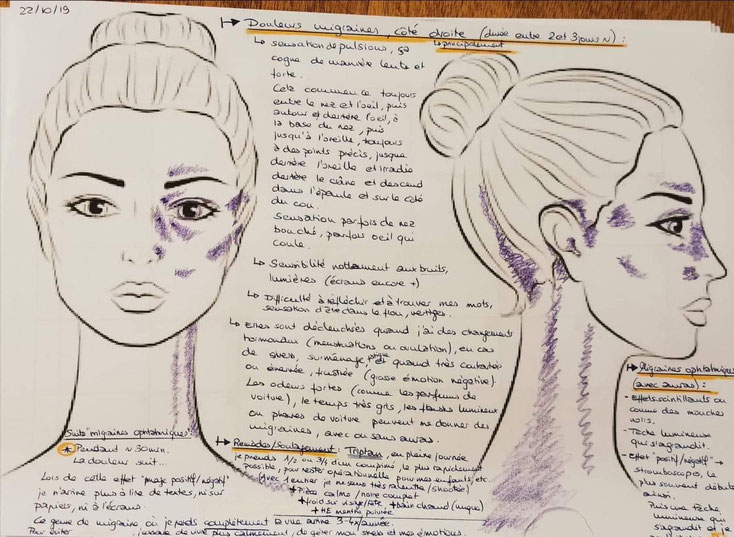 22/10/19
Douleurs migraines, côté droite (durée entre 2 et 3 jours N) :
↳ principalement
↳ sensation de pulsions, ça
cogne de manière lente et
forte.
Cela commence toujours
entre le nez et l'oeil, puis
autour et derrière l'oeil, à
la base du nez, puis
jusqu'à l'oreille, toujours
à des points précis, jusque
derrière l'oreille et irradie
derrière le crâne et descend
dans l'épaule et sur le côté
du cou.
Sensation parfois de nez
bouché, parfois oeil qui
coule.
↳ Sensibilité notamment aux bruits,
lumières (écrans encore +)
↳ Difficulté à réfléchir et à trouver mes mots,
sensation d'être dans le flou, vertiges.
↳ Elles sont déclenchées quand j'ai des changements
hormonaux (menstruations ou ovulation), en cas
de stress, surménage, quand très contrariée
ou énervée, frustrée (grosse émotion négative).
Les odeurs fortes (comme les parfums de
voiture), le temps très gris, les flashs lumineux
ou phares de voiture peuvent me donner des
migraines, avec ou sans auras.
Remèdes/Soulagement : Triptans, en pleine journée
je prends 1/2 ou d'un comprimé, le plus rapidement
possible, pour rester opérationnelle pour mes enfants, etc.
(Avec 1 entier je me sens très ralentie/shootée)
+ Pièce calme/noire complet
+ froid sur visage/tête + bain chaud (nuque)
+ HE menthe poivrée
Suite "migraines ophtalmiques"
* Pendant ~ 30 min.
La douleur suit...
Lors de cette effet "image positif/négatif"
je n'arrive plus à lire de textes, ni sur
papiers, ni à l'écrans.
Ce genre de migraine, où je perds complètement la vue arrive 3-4x/année.
Pour éviter j'essaie de vivre plus calmement, de gérer mon stress et mes émotions.
Migraines ophtalmiques
(avec auras) :
- Effets scintillants ou
comme des mouches
noirs.
- Tâche lumineuse
qui s'agrandit.
- Effet "positif/négatif" →
stroboscopes, le
plus souvent débute
ainsi.
Puis une tâche
lumineuse qui
s'agrandit et je